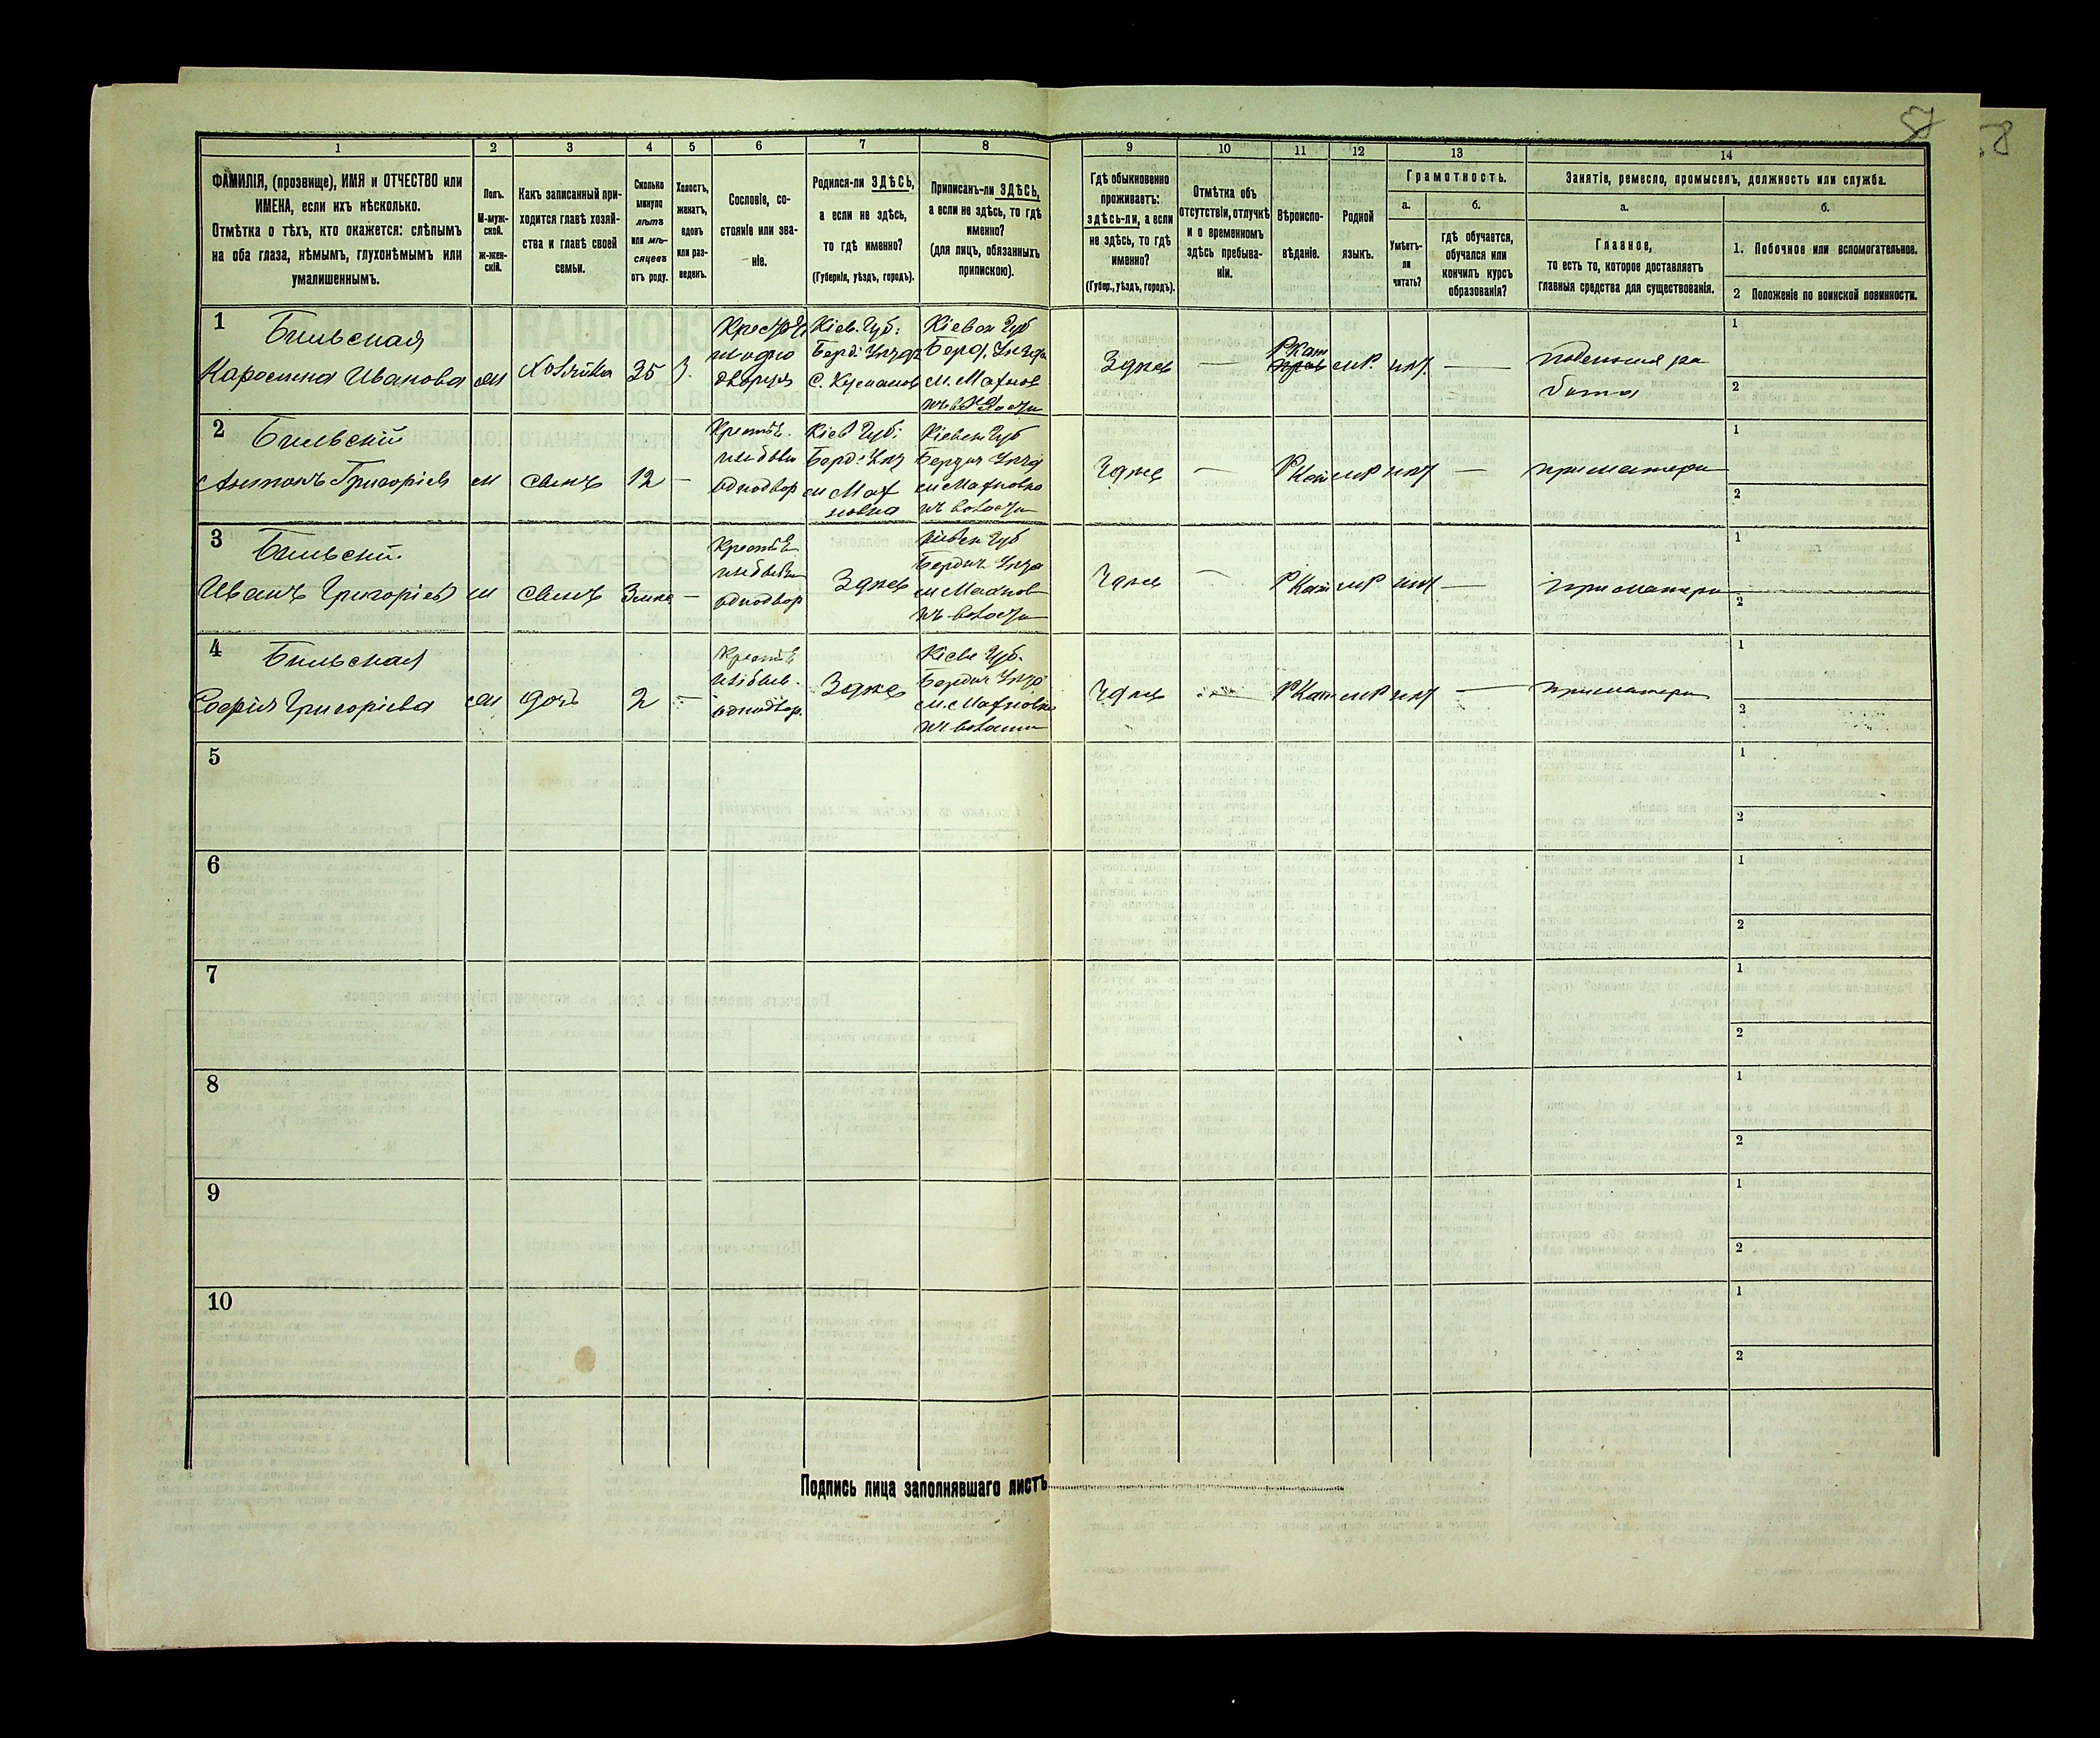 57
58
1
2
3
4
5
6
7
8
9
10
11
12
13
14
ФАМИЛІЯ, (прозвище), ИМЯ и ОТЧЕСТВО или
ИМЕНА, если ихъ нѣсколько.
Отмѣтка о тѣхъ, кто окажется: слѣпымъ
на оба глаза, нѣмымъ, глухонѣмымъ или
умалишеннымъ.
Полъ.
М-муж-
ской.
Ж-жен-
скій.
Какъ записанный при-
ходится главѣ хозяй-
ства и главѣ своей
семьи.
Сколько
минуло
лѣтъ
или мѣ-
сяцевъ
отъ роду.
Холостъ,
женатъ,
вдовъ
или раз-
веденъ.
Сословіе, со-
стояніе или зва-
ніе.
Родился-ли ЗДѢСЬ,
а если не здѣсь,
то гдѣ именно?
(Губернія, уѣздъ, городъ).
Приписанъ-ли ЗДѢСЬ,
а если не здѣсь, то гдѣ
именно?
(для лицъ, обязанныхъ
припискою).
Гдѣ обыкновенно
проживаетъ:
здѣсь-ли, а если
не здѣсь, то гдѣ
именно?
(Губер., уѣздъ, городъ).
Отмѣтка объ
отсутствіи, отлучкѣ
и о временномъ
здѣсь пребыва-
ніи.
Вѣроиспо-
вѣданіе.
Родной
языкъ.
Грамотность.
а.
Умѣетъ-
ли
читать?
б.
гдѣ обучается,
обучался или
кончилъ курсъ
образованія?
Занятіе, ремесло, промыселъ, должность или служба.
а.
Главное,
то есть то, которое доставляетъ
главныя средства для существованія.
б.
1. Побочное или вспомогательное.
2 Положеніе по воинской повинности.
1
Бильская
Каролина Иванова
Хозяйка
35
Кіев. Губ:
Берд: Уѣзда
Кіевск Губ
Берд. Уѣзда
м. Махнов
Здѣсь
—
РКат
мР.
нѣт
—
поденная ра
бота
1
2
2
Бильскій
Антонъ Григоріев
м
сынъ
12
—
однодвор
Кіев Губ:
Берд: Уѣз
м Мах
новка
Кіевск Губ
Бердич Уѣзд
м Махновка
Здѣсь
—
РКат
мР
нѣт
—
при матери
1
2
3
Бильскій
Иванъ Григоріев
м
сынъ
—
однодвор
Здѣсь
Кіевск Губ
Бердич Уѣзд
м Махнов
Здѣсь
—
РКат
мР
нѣт
—
при матери
1
2
4
Бильская
Софія Григоріева
дочь
2
—
однодвор.
Здѣсь
Кіевск Губ.
Бердич Уѣзд
м. Махновка
Здѣсь
—
РКат
мР
нѣт
—
при матери
1
2
5
1
2
6
1
2
7
1
2
8
1
2
9
1
2
10
1
2
Подпись лица заполнявшаго листъ